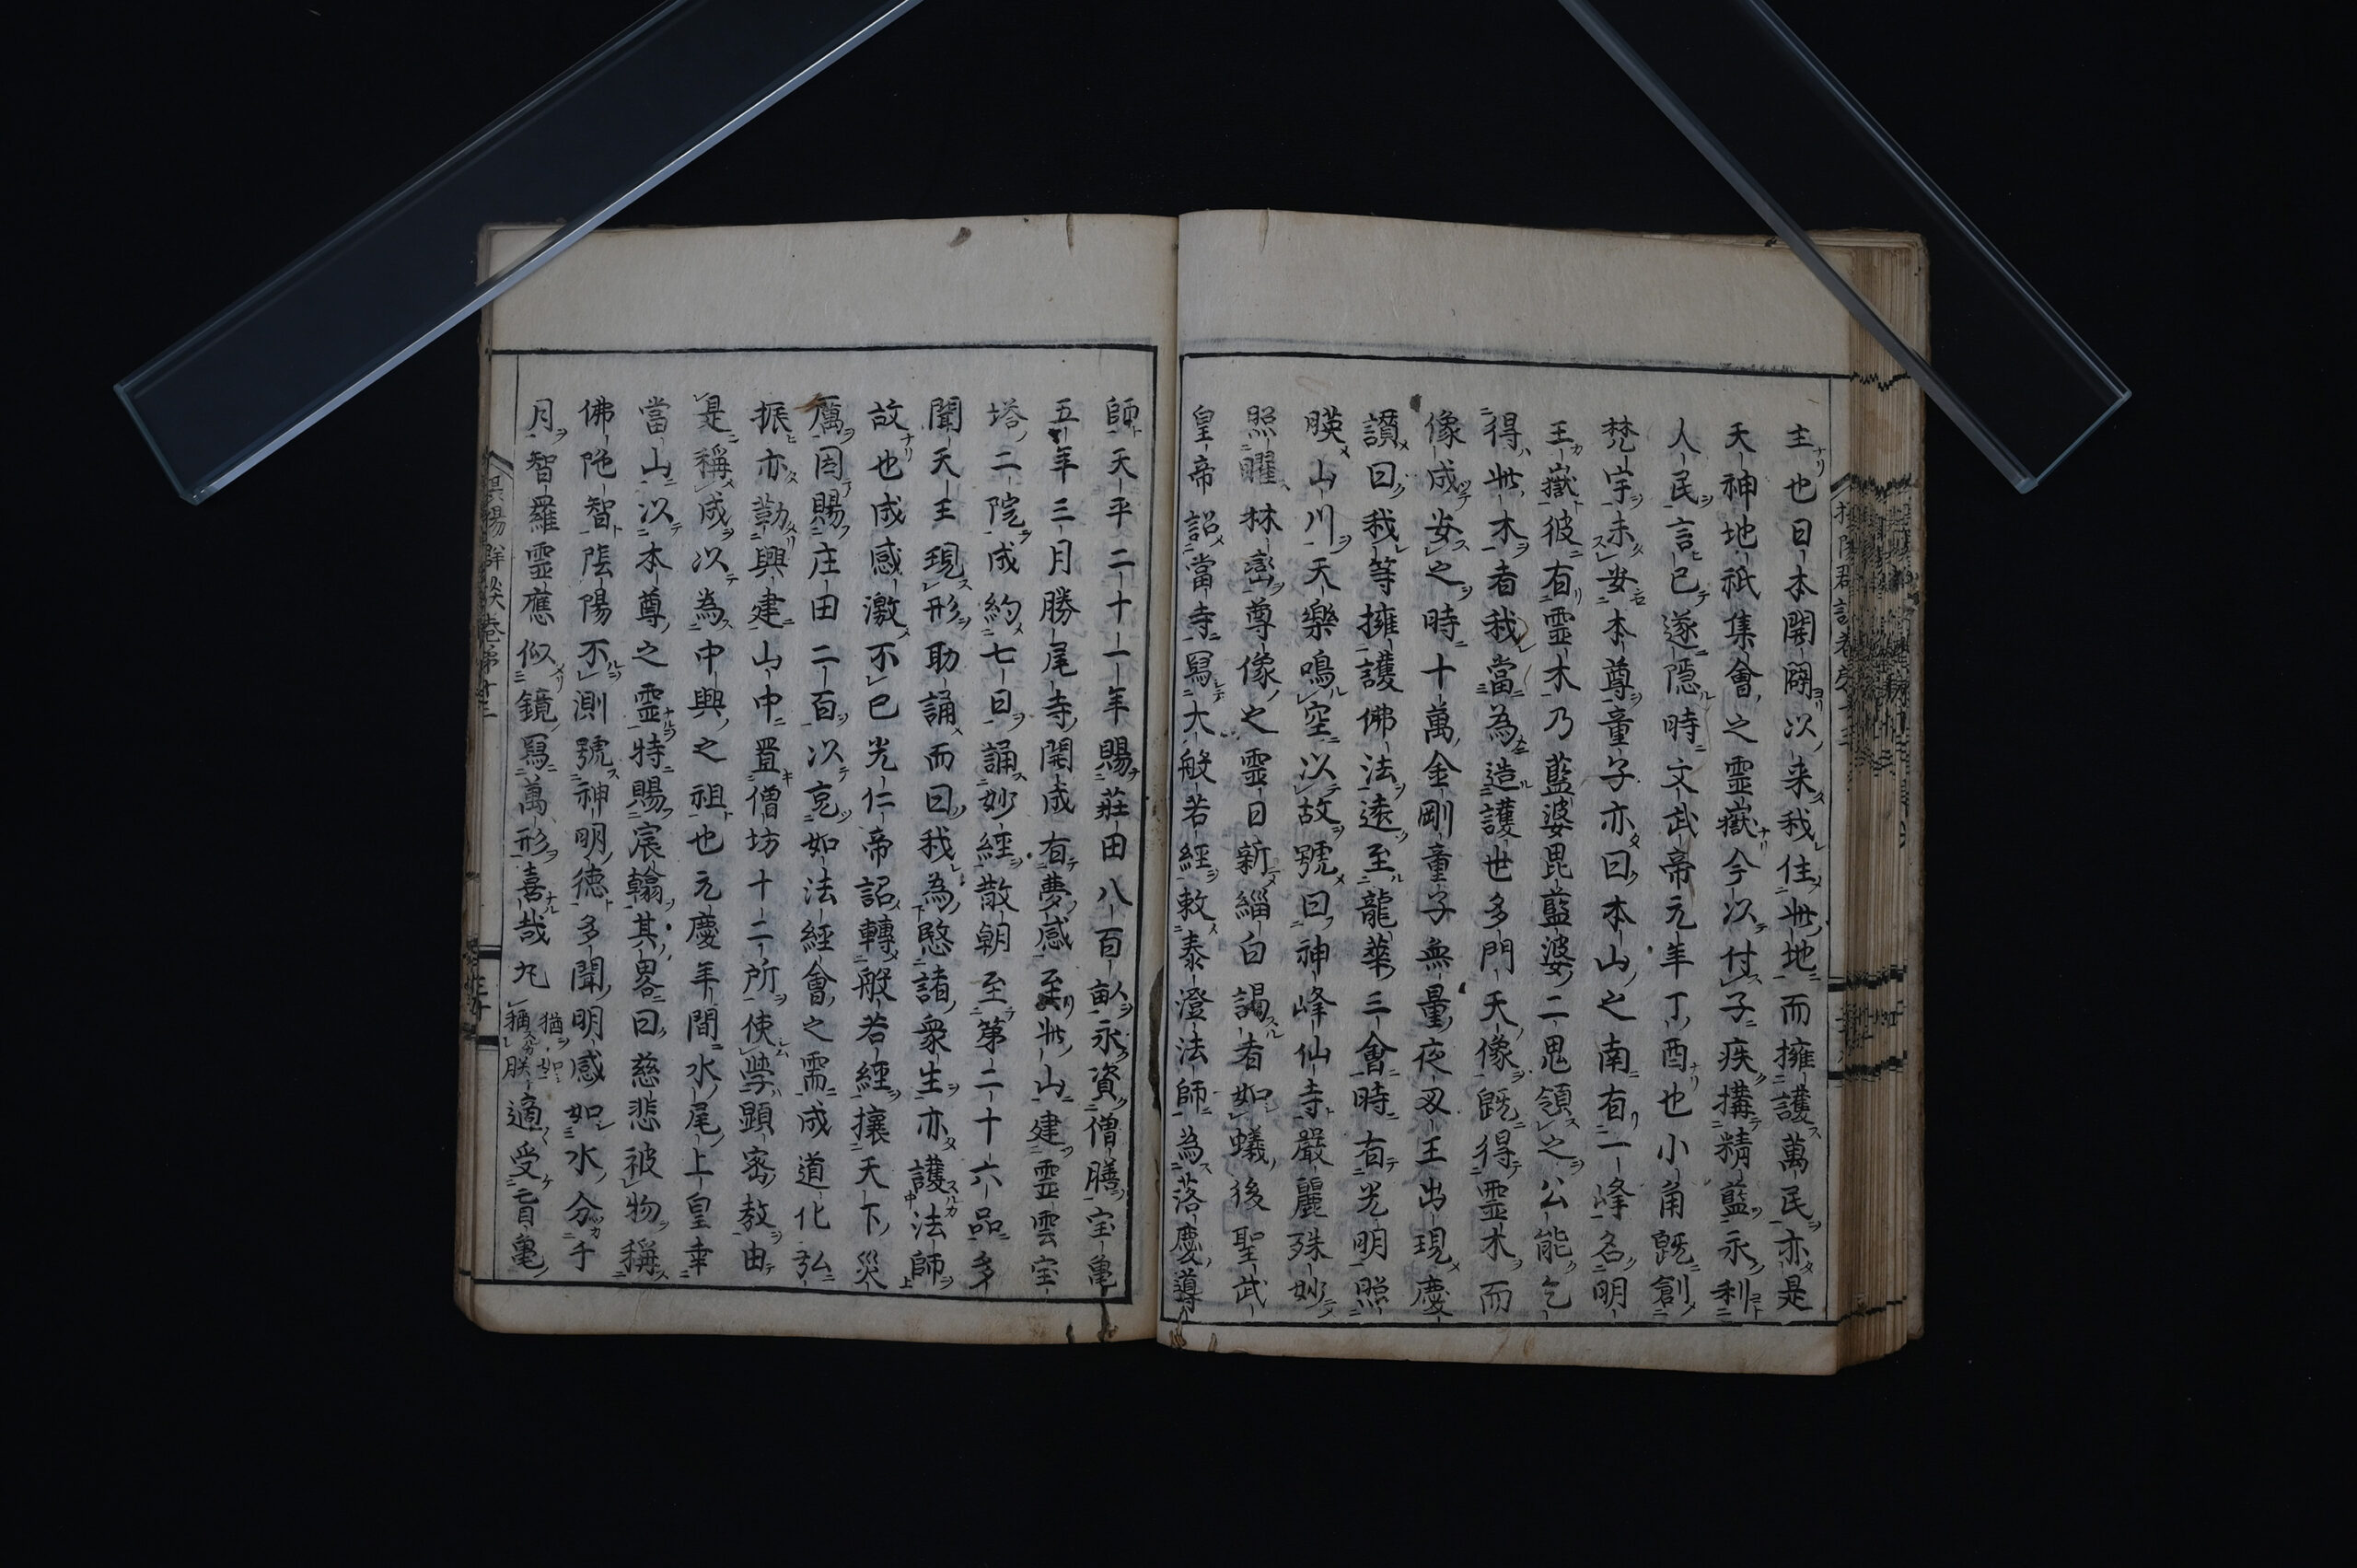 主也日本開闢以来我住此地而擁護萬民亦是
天神地祇集會之靈嶽今以付子疾搆精藍永利
人民言已遂隱時文武帝元年丁酉也小角既創
梵宇未安本尊童子亦曰本山之南有一峰名明
王嶽彼有靈木乃藍婆毘藍婆二鬼領之公能乞
得此木者我當為造護世多門天像既得靈木而
像成安之時十萬金剛童子無量夜叉王出現慶
讃曰我等擁護佛法遠至龍華三會時有光明照
暎山川天樂鳴空以故號曰神峰仙寺嚴麗殊妙
照曜林巒尊像之靈日新緇白謁者如蟻後聖武
皇帝詔當寺冩大般若經敕泰澄法師為落慶導
師天平二十一年賜莊田八百畝永資僧膳宝亀
五年三月勝尾寺開成有夢感至此山建靈雲宝
塔二院成約七日誦妙經散朝至第二十六品多
聞天王現形助誦而曰我為愍諸衆生亦護法師
故也成感激不已光仁帝詔轉般若經攘天下災
厲因賜庄田二百以克如法經會之需成道化弘
振亦勅興建山中置僧坊十二所使學顕密教由
是稱成以為中興之祖也元慶年間水尾上皇幸
當山以本尊之靈特賜宸翰其畧曰慈悲被物稱
佛陁智隂陽不測號神明徳多聞明感如水分千
月智羅靈應似鏡冩萬形喜哉 猶如 稱朕適受盲亀